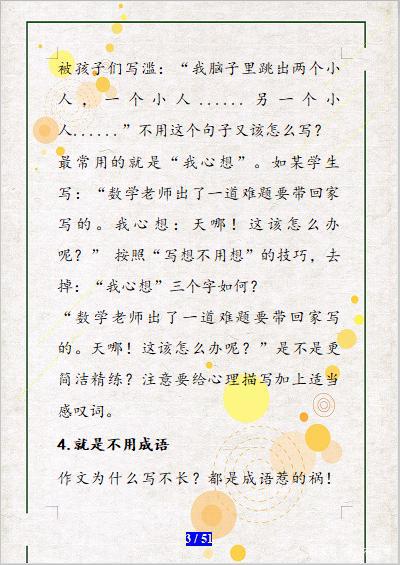 被孩子们写滥：“我脑子里跳出两个小
人，一个小人......另一个小
人......”不用这个句子又该怎么写？
最常用的就是“我心想”。如某学生
写：“数学老师出了一道难题要带回家
写的。我心想：天哪！这该怎么办
呢？” 按照“写想不用想”的技巧，去
掉：“我心想”三个字如何？
“数学老师出了一道难题要带回家写
的。天哪！这该怎么办呢？”是不是更
简洁精练？注意要给心理描写加上适当
感叹词。
4.就是不用成语
作文为什么写不长？都是成语惹的祸！
3 / 51